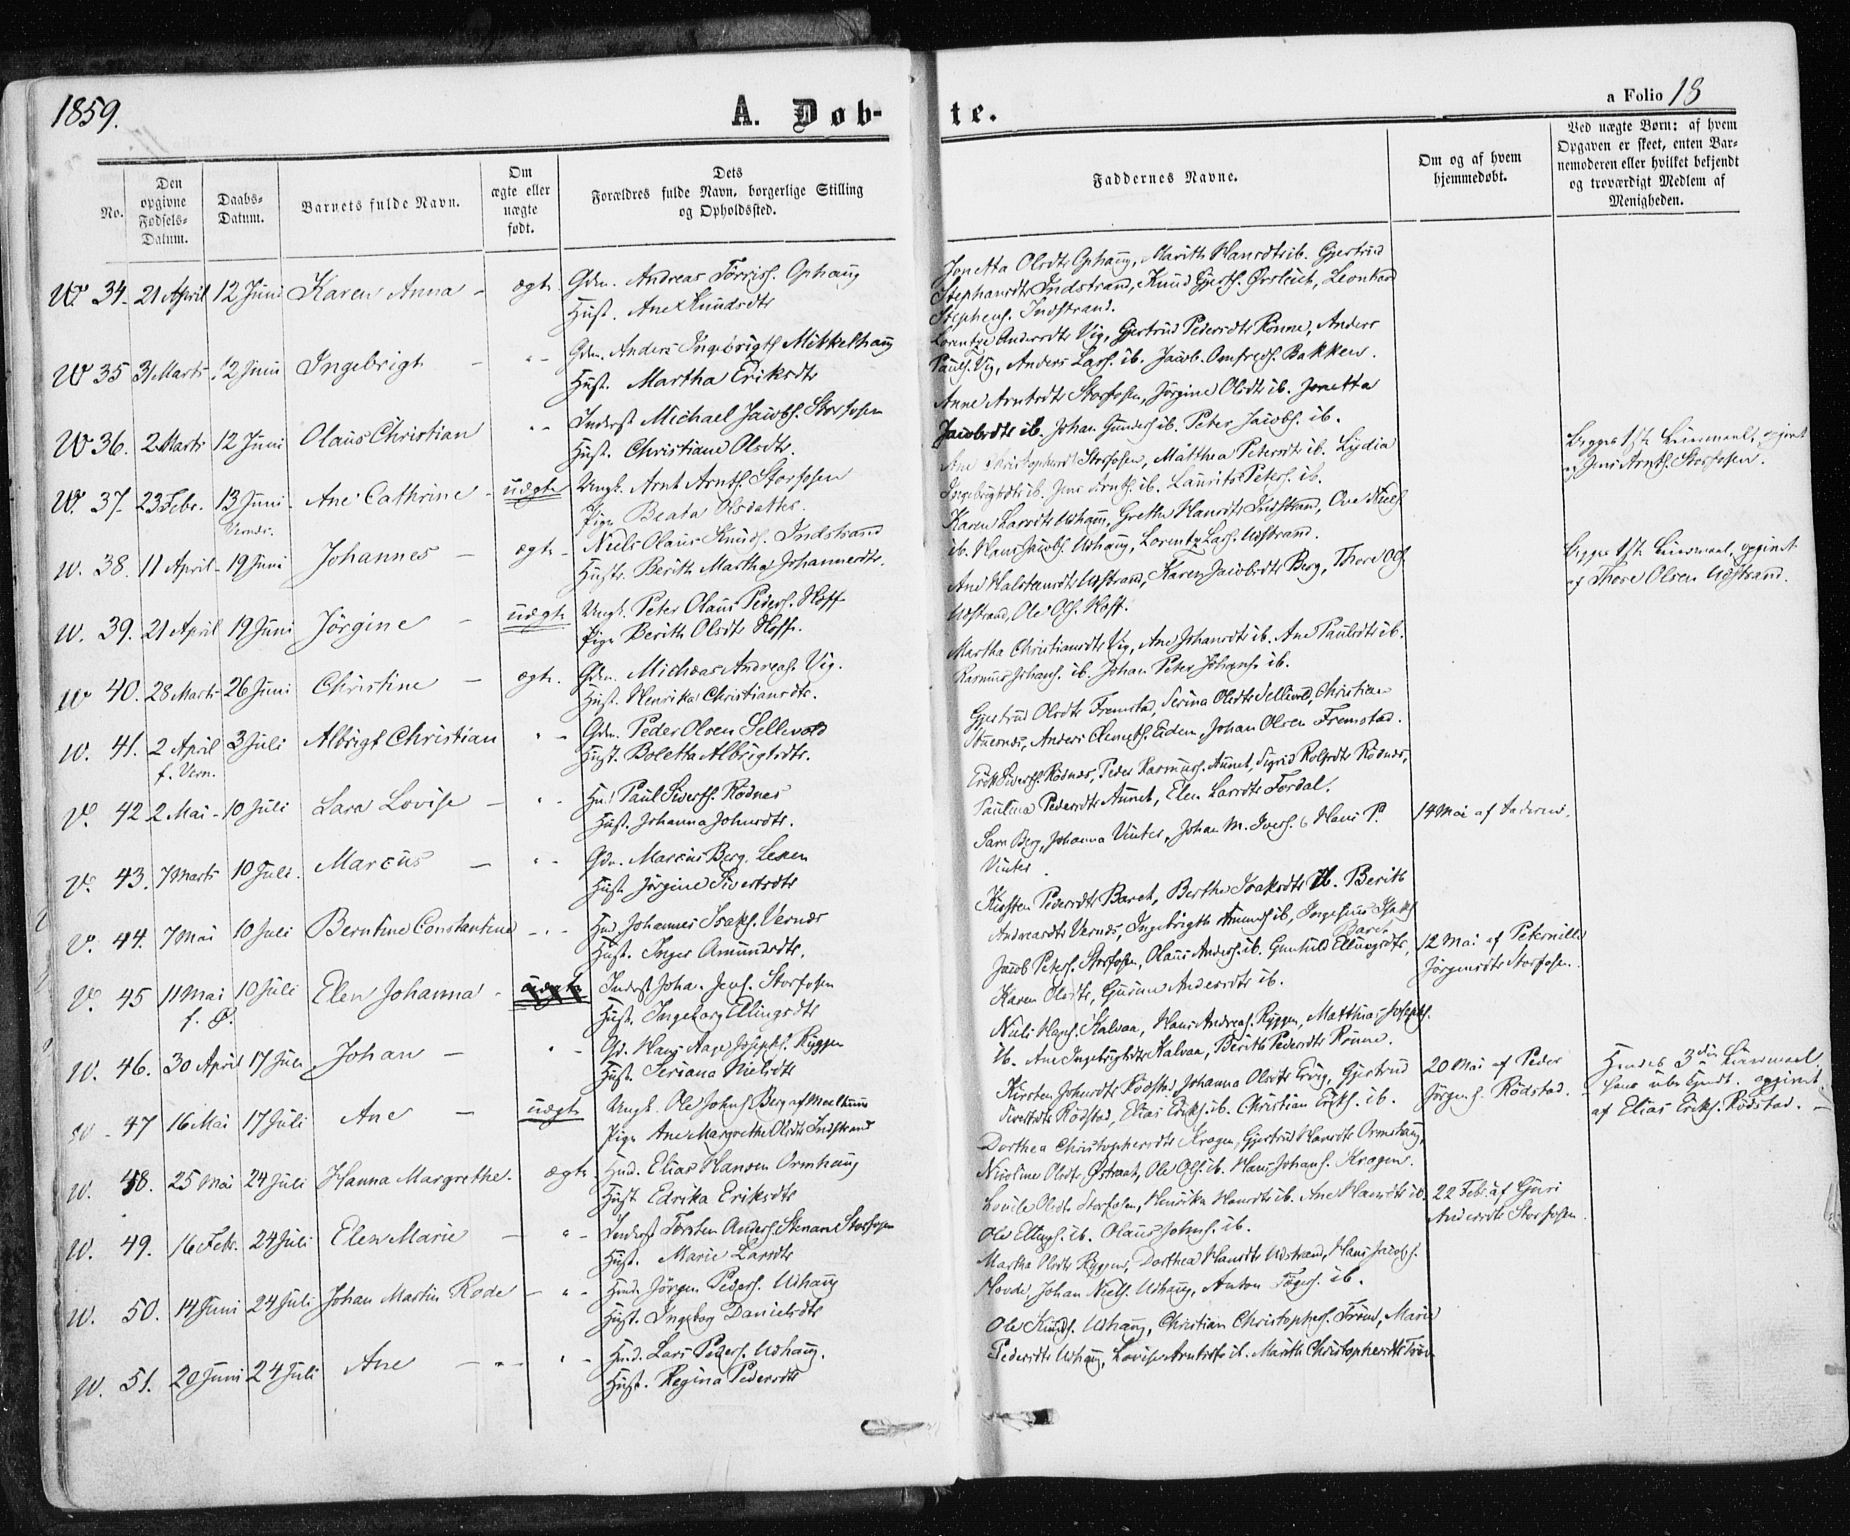 1859.
A. Døb-
te.
a Folio 18
No.
Den opgivne Fødsels-Datum.
Daabs-Datum.
Barnets fulde Navn.
Om ægte eller uægte født.
Dets Forældres fulde Navn, borgerlige Stilling og Opholdssted.
Faddernes Navne.
Om og af hvem hjemmedøbt.
Ved uægte Børn: af hvem Opgaven er skeet, enten Barnemoderen eller hvilket bekjendt og troværdigt Medlem af Menigheden.
34. 21 April 12 Juni Karen Anna - ægte Gdm. Andreas Torriss. Ophaug
Hust. Ane Knudsdtr
Jonetta Olsdtr Ophaug, Marith Hansdtr ib. Gjertrud
Stephansdtr Indstrand, Knud Gjertss. Ørsleut, Leonhard
Stephens. Indstrand.
W 35 31 Marts 12 Juni Ingebrigt - " - Gdm. Anders Ingebrigts. Mikkelhaug
Hust. Martha Eriksdtr
Lorentze Andersdtr Vig, Gjertrud Pedersdtr Rønne, Anders
Pauls. Vig, Anders Lars. ib. Jacob Bakken.
W 36. 2 Marts 12 Juni Olaus Christian " - Inderst Michael Jacobs. Storfosen
Hust. Christiane Olsdtr.
Anne Arntsdtr Storfosen, Jørgine Olsdtr ib. Jonetta
Jacobsdtr ib. Johan Gunders. ib. Peter Jacobs. ib.
W. 37. 23 Febr. 13 Juni Ane Cathrine - uægte Ungk. Arnt Arnts. Storfosen
Pige Beata Olsdatter.
Ane Christophersdtr Storfosen, Matthea Pedersdtr ib. Lydia
Ingebrigtsdtr ib. Jens Arnts. ib. Laurits Peters. ib.
Begges 1ste Leiermaal, opgivet
af Jens Arnts. Storfosen.
W. 38. 11 April - 19 Juni Johannes - ægte - Niels Olaus Knuds. Indstrand
Hustr. Berith Martha Johannesdtr.
Karen Larsdtr Udhaug, Grethe Hansdtr Indstrand, Ove Niels.
ib. Hans Jacobs. Udhaug, Lorentz Lars. Udstrand.
W. 39. 21 April 19 Juni Jörgine - uægte Ungk. Peter Olaus Peders. Hoff
Pige Berith Olsdtr Hoff.
Ane Halstensdtr Udstrand, Karen Jacobsdtr Berg, Thore Ols.
Udstrand, Ole Ols. Hoff.
Begges 1ste Leiermaal, opgivet
af Thore Olsen Udstrand.
W 40. 28 Marts 26 Juni Christine - ægte. Gdm. Michas Andreas. Vig.
Hust. Henrika Christiansdtr.
Martha Christiansdtr Vig, Ane Johansdtr ib. Ane Paulsdtr ib.
Rasmus Johans. ib. Johan Peter Johans. ib.
W. 41. 2 April 3 Juli Albrigt Christian " - Gdm. Peder Olsen Sellevold
f. Vern.
Hust. Boletta Albrigtsdtr.
Gjertrud Olsdtr Fremstad, Serina Olsdtr Sellevold, Christian
Stuernes, Anders Clemets. Eiden, Johan Olsen Fremstad.
V. 42 2 Mai - 10 Juli Sara Lovise - " - Paul Siverts. Rødnes
Hust. Johanna Johnsdtr.
Erik Siverts. Rödnes, Peder Rasmus. Aunet, Sigrid Rolfsdtr Rödnes,
Paulina Pedersdtr Aunet, Elen Larsdtr Fordal.
V. 43. 7 Marts 10 Juli. Marcus - " - Gdm. Marcus Berg, Leren
Hust. Jörgine Sivertsdtr
Sara Berg, Johanna Vinter, Johan M. Ivers. & Hans P.
Vinter.
14 Mai af Faderen.
V. 44. 7 Mai 10 Juli Berntine Constantine - " - Hmd. Johannes Isaks. Vernæs
Hust. Inger Amundsdtr.
Kirsten Pedersdtr Baret, Berthe Isaksdtr ib. Berith
Andreasdtr Vernæs, Ingebrigth Amunds. ib, Isaks.
Baret
V. 45 11 Mai 10 Juli Elen Johanna - Inderst Johan Jens. Storfosen
f. P.
Hust. Ingeborg Ellingsdtr
Jacob Peters. Storfosen, Olaus Anders. ib. Gunhild Ellingsdtr,
Karen Olsdtr, Gjurine Andersdtr ib.
12 Mai af Peternille
Jörgensdtr Storfosen.
W. 46. 30 April 17 Juli Johan - " - Gd. Hans Aage Josephs. Ryggen
Hust. Seriana Nielsdtr
Niels Hans. Kalvaa, Hans Andreas. Ryggen, Matthias Josephs.
ib. Ane Ingebrigtsdtr Kalvaa, Berith Pedersdtr Rönne.
W - 47 16 Mai 17 Juli Ane - uægte Ungk. Ole Johns. Berg af
Pige Ane Margrethe Olsdtr Indstrand
Kirsten Johnsdtr Rödstad, Johanna Olsdtr Ervig, Gjertrud
Sivertsdtr Rödstad, Elias Eriks. ib. Christian Eriks. ib.
20 Mai af Peder
Jörgens. Rödstad.
Hendes 3die Leiermaal,
hans ubekjendt. opgivet
af Elias Eriks. Rödstad. -
W. 48. 25 Mai 24 Juli Hanna Margrethe. ægte Hmd. Elias Hansen Ormhaug
Hust Edrika Eriksdtr
Dorthea Christophersdtr Kragen, Gjertrud Hansdtr Ormhaug,
Nicoline Olsdtr Østraat, Ole Ols. ib. Hans Johans. Kragen.
W. 49. 16 Febr. 24 Juli Elen Marie - " - Inderst Torsten Anders. Storfosen
Hust. Marie Larsdtr
Lovise Olsdtr Storfosen, Henrika Hansdtr ib. Ane Hansdtr ib.
Ole Ellings. ib. Olaus Johns. ib.
22 Febr. af Guri
Andersdtr Storfosen.
W. 50. 14 Juni 24 Juli Johan Martin Rode - " - Hmd. Jörgen Peders. Udhaug
Hust. Ingebor Danielsdtr
Martha Olsdtr Ryggen, Dorthea Hansdtr Udstrand, Hans Jacobs.
Hovde, Johan Niels. Udhaug, Anton ib.
W. 51. 20 Juni 24 Juli Ane - " - " - Hmd. Lars Peders. Udhaug.
Hust. Regina Pedersdtr
Ole Knuds. Udhaug, Christian Christophers. Trøen, Marie
Pedersdtr Udhaug, Lovise Arntsdtr ib. Marith Christophersdtr Trøen